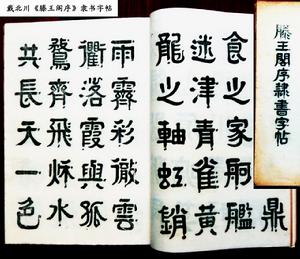 戴北川《滕王阁序》隶书字帖
滕王閣序隸書字帖
鼎
食之家舸艦
迷津青雀黄
龍之軸虹銷
雨霽彩徹雲
衢落霞與孤
鶩齊飛秌水
共長天一色